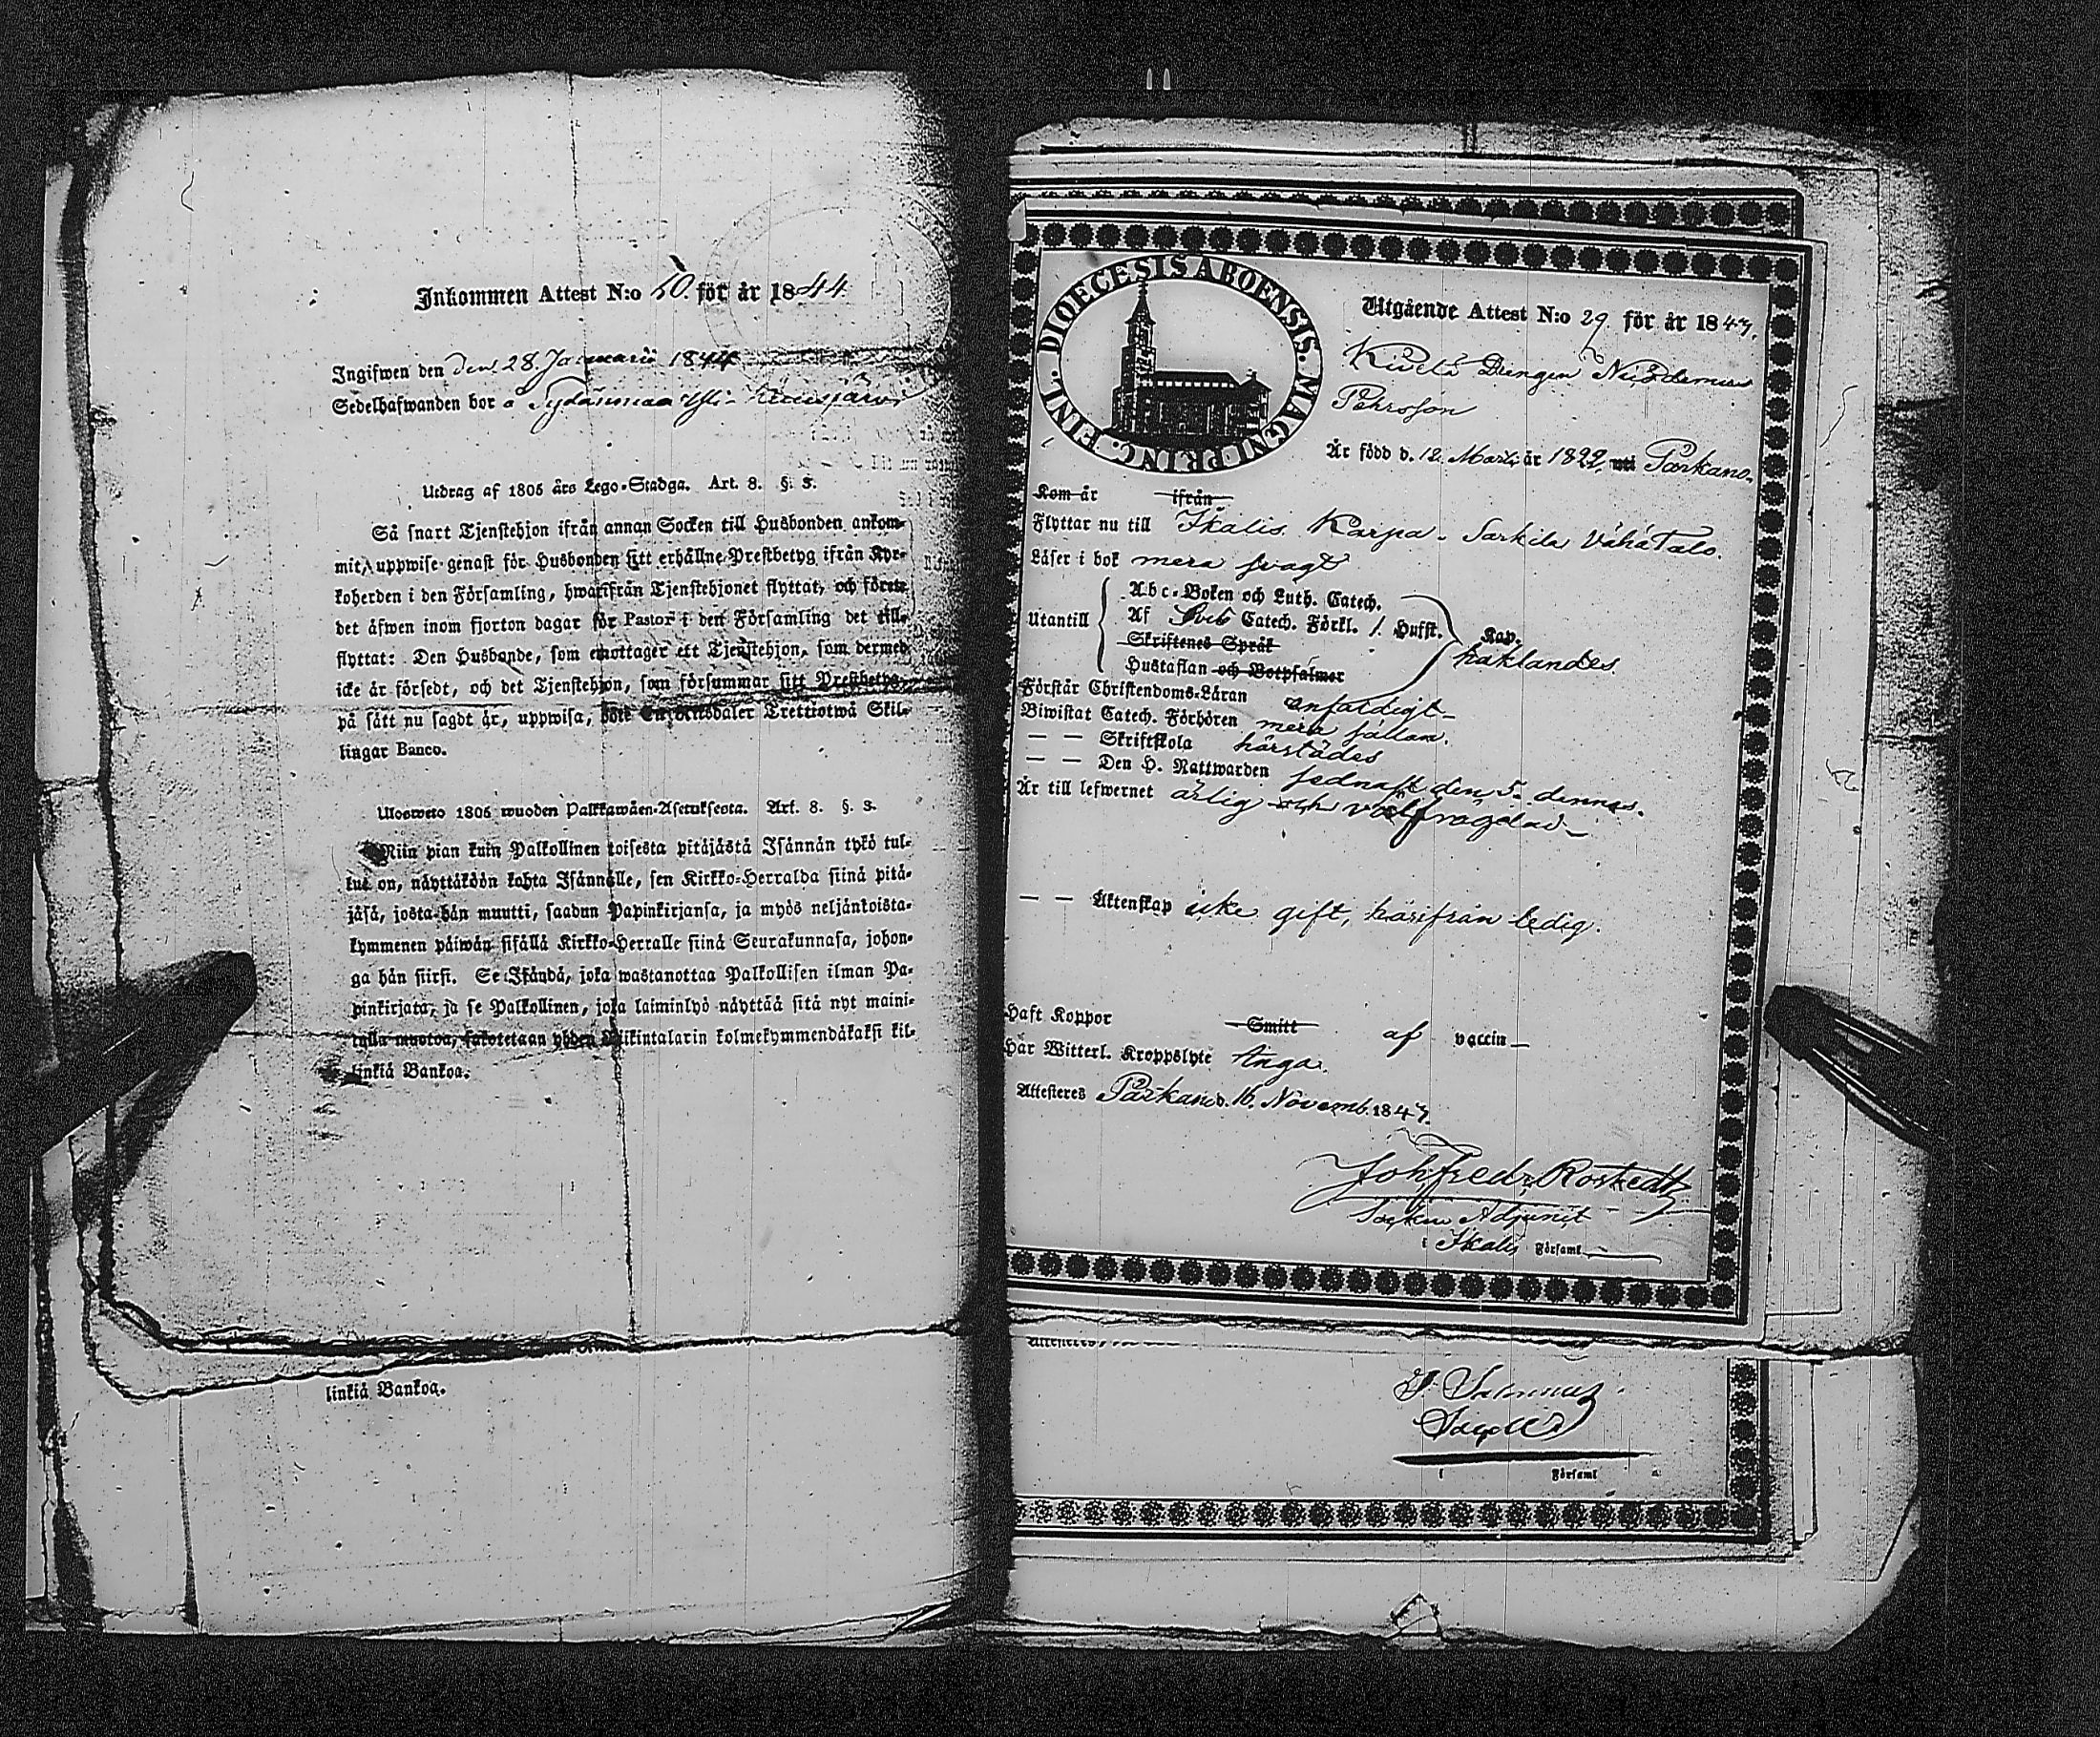 Inkommen Attest N:o 10. för år 1844.
Ingifwen den den 28. Januarii 1844
Sedelhafwanden bor å Sydänmaa
Utdrag af 1805 års Lego-Stadga. Art. 8. §. 3.
Så snart Tjenstehjon ifrån annan Socken till Husbonden ankom-
mit, uppwise genast för Husbonden sitt erhållne Prestbetyg ifrån Kyr-
koherden i den Församling, hwarifrån Tjenstehjonet flyttat, och förete
det äfwen inom fjorton dagar för Pastor i den Församling det till-
flyttat: Den Husbonde, som emottager ett Tjenstehjon, som dermed
icke är försedt, och det Tjenstehjon, som försummar sitt Prestbetyg,
på sätt nu sagdt är, uppwisa, böte En Riksdaler Trettiotwå Skil-
lingar Banco.
Ulosweto 1805 wuoden Palkkawäen-Asetuksesta. Art. 8. §. 3.
Niin pian kuin Palkollinen toisesta pitäjästä Isännän tykö tul-
lut on, näyttäköön kohta Isännälle, sen Kirkko-Herralda siinä pitä-
jäsä, josta hän muutti, saadun Papinkirjansa, ja myös neljäntoista-
kymmenen päiwän sisällä Kirkko-Herralle siinä Seurakunnasa, johon-
ga hän siirsi. Se Isändä, joka wastanottaa Palkollisen ilman Pa-
pinkirjata, ja se Palkollinen, joka laiminlyö näyttää sitä nyt maini-
tulla muotoa, sakotetaan yhden Riikintalarin kolmekymmendäkaksi kil-
linkiä Bankoa.
linkiä Bankoa.
DIOECESIS ABOENSIS. MAGNI PRINC. FINL.
Utgående Attest N:o 29. för år 1843.
Kivelä Drengen Nicodemus
Pehrsson
Är född d. 12. Martii år 1822. uti Parkano.
Kom år ifrån
Flyttar nu till Ikalis Karpa. Sarkila Vähä Talo.
Läser i bok mera svagt
Utantill
Abc-Boken och Luth. Catech.
Af Sveb Catech. Förkl. 1. Hufst.
Skriftenes Språk
Hustaflan och Botpsalmer
Kap.
haklandes.
Förstår Christendoms-Läran enfaldigt
Biwistat Catech. Förhören mera sällan.
— — Skriftskola härstädes
— — Den H. Nattwarden sednast den 5. dennes.
Är till lefwernet ärlig och välfrägdad
— — Äktenskap icke gift, härifrån ledig.
Haft Koppor Smitt af vaccin
Här Witterl. Kroppslyte Inga.
Attesteres Parkano d. 16. Novemb. 1843.
Joh Fredr Roskedt
Socken Adjunct
i Ikalis Församl.
Attesteres
i Församl